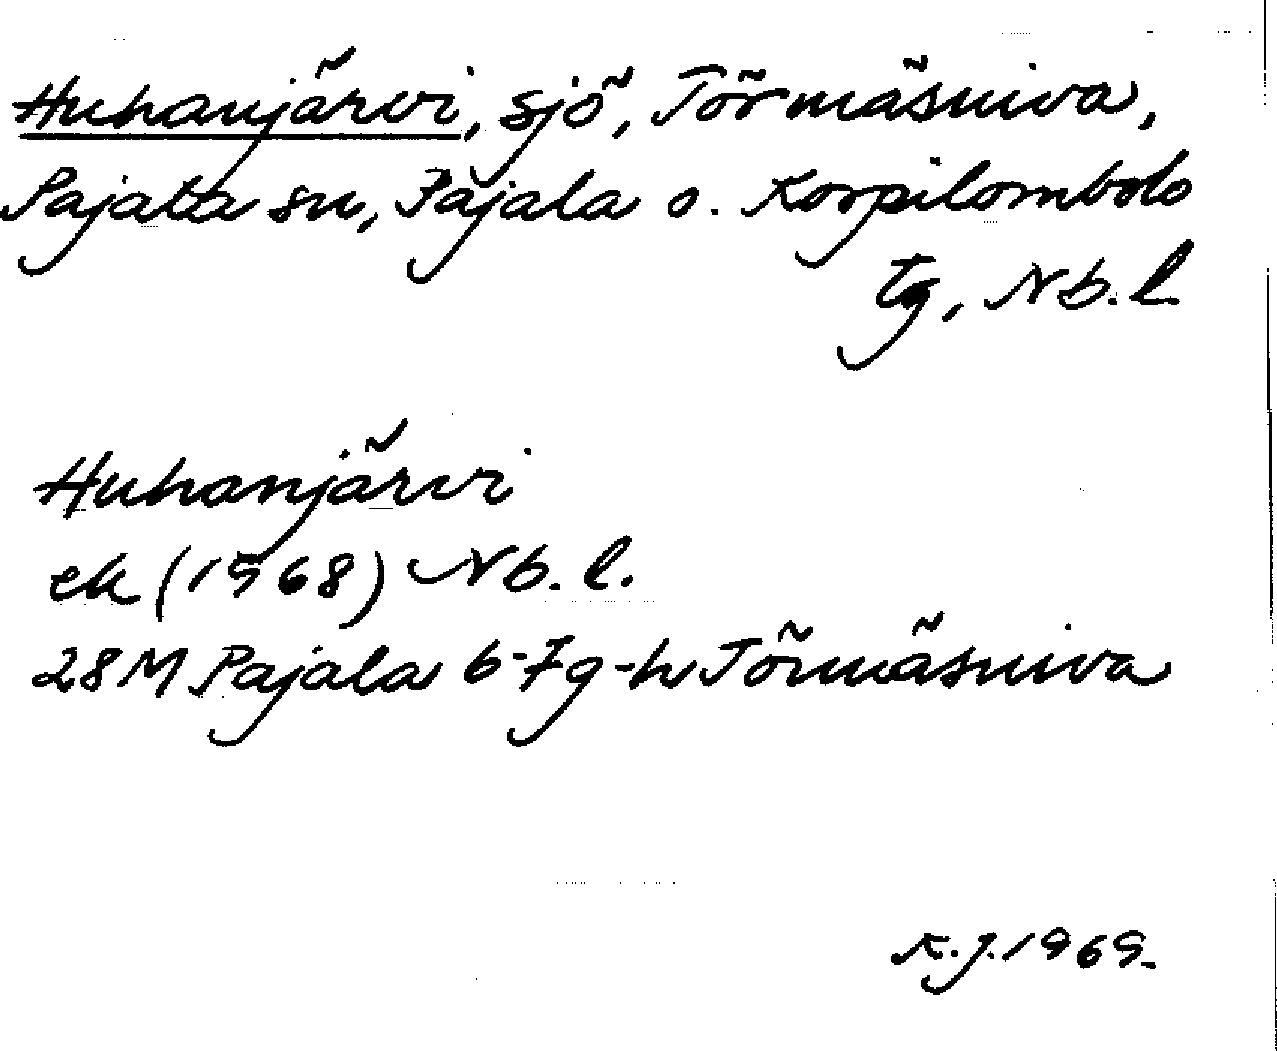 Huhanjärvi, sjö, Törmäsniva,
Pajala sn, Pajala o. Korpilombolo
tg, Nb. l.
Huhanjärvi
ek (1968) Nb. l.
28 M Pajala 6-7 g-h Törmäsniva
K. J. 1969.